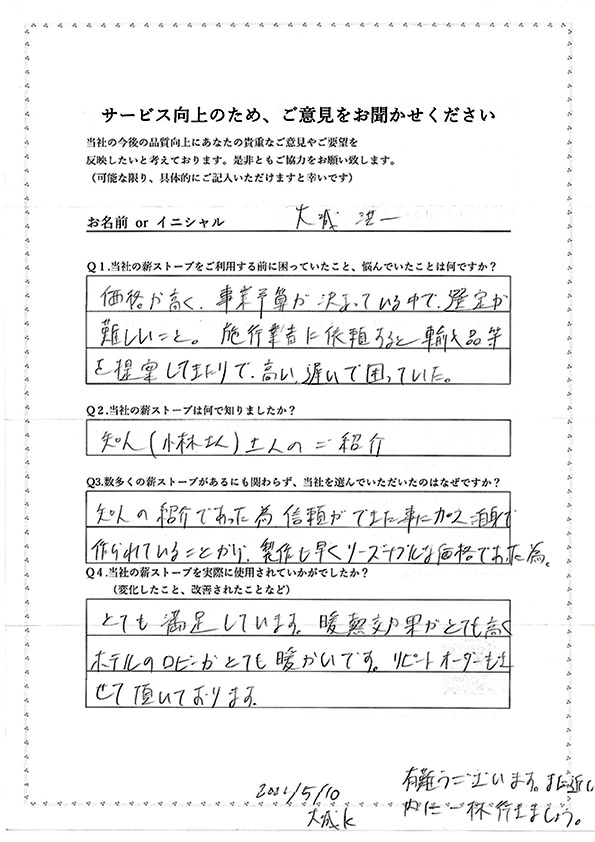 サービス向上のため、ご意見をお聞かせください
当社の今後の品質向上にあなたの貴重なご意見やご要望を
反映したいと考えております。是非ともご協力をお願い致します。
（可能な限り、具体的にご記入いただけますと幸いです）
お名前 or イニシャル 大城 浩一
Q1.当社の薪ストーブをご利用する前に困っていたこと、悩んでいたことは何ですか？
価格が高く、事業予算が決まっている中で、選定が
難しいこと。施行業者に依頼すると輸入品等
を提案してきたりで、高い、遅いで困っていた。
Q2.当社の薪ストーブは何で知りましたか？
知人（小林さん）士人のご紹介
Q3.数多くの薪ストーブがあるにも関わらず、当社を選んでいただいたのはなぜですか？
知人の紹介であった為 信頼ができた事に加え
作られていることから、製作も早くリーズナブルな価格であった為。
Q4.当社の薪ストーブを実際に使用されていかがでしたか？
（変化したこと、改善されたことなど）
とても満足しています。暖熱効果がとても高く
ホテルのロビーがとても暖かいです。リピートオーダーもさ
せて頂いております。
2021/5/10
大城k
有難うございます。また近い
内に一杯行きましょう。